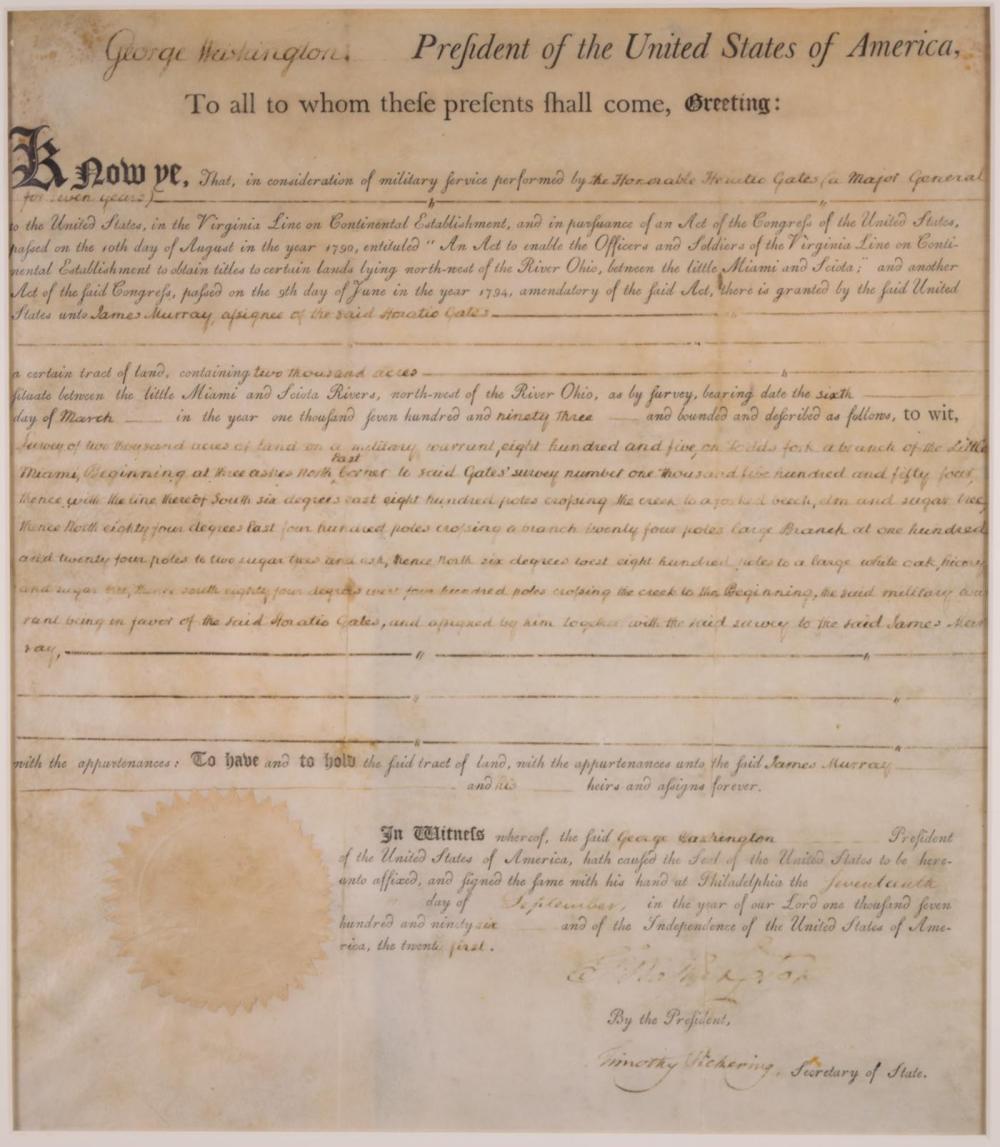 George Washington, Preſident of the United States of America,
To all to whom theſe preſents ſhall come, Greeting:
Know ye, That, in conſideration of military ſervice performed by the Honorable Horatio Gates (a Major General
for seven years)
to the United States, in the Virginia Line on Continental Establiſhment, and in purſuance of an Act of the Congreſs of the United States,
paſſed on the 10th day of Auguſt in the year 1790, entituled "An Act to enable the Officers and Soldiers of the Virginia Line on Conti-
nental Eſtabliſhment to obtain titles to certain lands lying north-weſt of the River Ohio, between the little Miami and Sciota;" and another
Act of the ſaid Congreſs, paſſed on the 9th day of June in the year 1794, amendatory of the ſaid Act, there is granted by the ſaid United
States unto James Murray, aſsignee of the said Horatio Gates
a certain tract of land, containing two thousand acres
ſituate between the little Miami and Sciota Rivers, north-weſt of the River Ohio, as by ſurvey, bearing date the sixth
day of March in the year one thouſand ſeven hundred and ninety three and bounded and deſcribed as follows, to wit,
Survey of two thousand acres of land on a military warrant, eight hundred and five, on Todds fork a branch of the Little
Miami, Beginning at three ashes North East Corner to said Gates' survey number one thousand two hundred and fifty four,
thence with the line thereof South six degrees east eight hundred poles croſsing the creek to a forked beech, elm and sugar tree,
thence North eighty four degrees East four hundred poles croſsing a branch twenty four poles large Branch at one hundred
and twenty four poles to two sugar trees and ash, thence North six degrees west eight hundred poles to a large white oak, hicory
and sugar tree, thence south eighty four degrees west four hundred poles croſsing the creek to the Beginning, the said military war
rant being in favor of the said Horatio Gates, and aſsigned by him together with the said survey to the said James Mur
ray,
with the appurtenances: To have and to hold the ſaid tract of land, with the appurtenances unto the ſaid James Murray
and his heirs and aſſigns forever.
In Witneſs whereof, the ſaid George Washington Preſident
of the United States of America, hath cauſed the Seal of the United States to be here-
unto affixed, and ſigned the ſame with his hand at Philadelphia the Seventeenth
day of September, in the year of our Lord one thouſand ſeven
hundred and ninety six and of the Independence of the United States of Ame-
rica, the twenty first.
G. Washington
By the Preſident,
Timothy Pickering, Secretary of State.